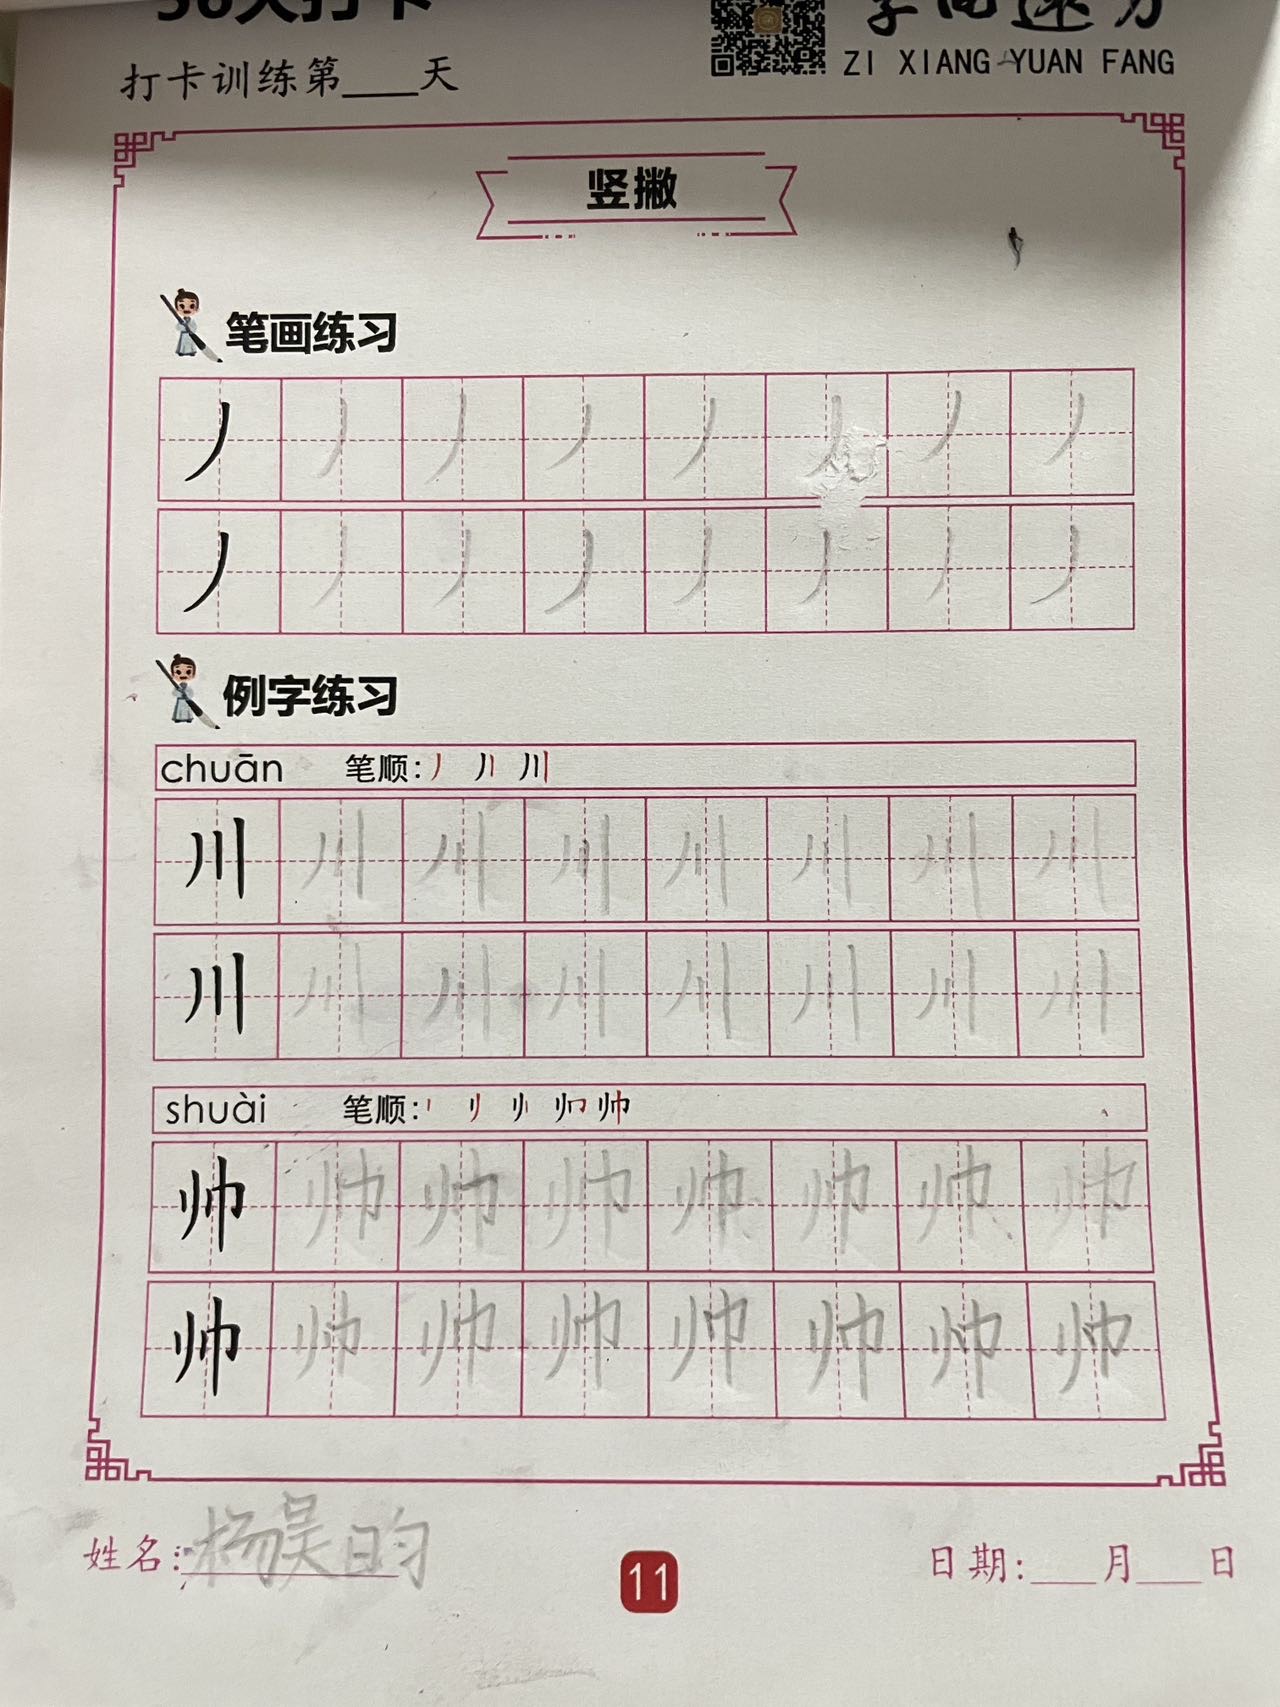 打卡训练第____天
ZI XIANG YUAN FANG
竖撇
笔画练习
丿 丿 丿 丿 丿 丿 丿 丿
丿 丿 丿 丿 丿 丿 丿 丿
例字练习
chuān 笔顺:
川 川 川 川 川 川 川 川
川 川 川 川 川 川 川 川
shuài 笔顺:
帅 帅 帅 帅 帅 帅 帅 帅
帅 帅 帅 帅 帅 帅 帅 帅
姓名:杨昊昀
11
日期:___月___日